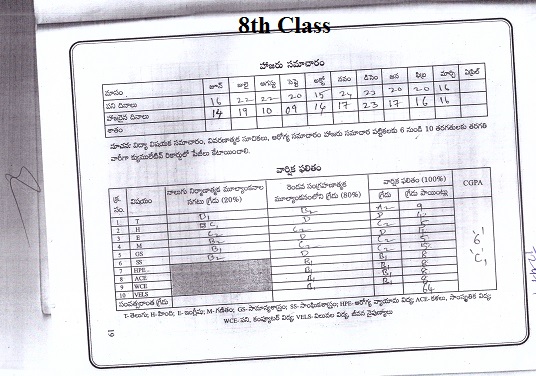 8th Class
హాజరు సమాచారం
మాసం జూన్ జులై ఆగస్టు సెప్టె అక్టో నవం డిసెం జన ఫిబ్ర మార్చి ఏప్రిల్
పని దినాలు 16 22 22 20 15 24 23 20 20 16
హాజరైన దినాలు 14 19 10 09 14 17 23 17 16 16
శాతం
సూచన: విద్యా విషయక సమాచారం, వివరణాత్మక సూచికలు, ఆరోగ్య సమాచారం హాజరు సమాచార పట్టికలకు 6 నుండి 10 తరగతులకు తరగతి
వారీగా క్యుములేటివ్ రికార్డులో పేజీలు కేటాయించాలి.
వార్షిక ఫలితం
క్ర. సం. విషయం నాలుగు నిర్మాణాత్మక మూల్యాంకనాల సగటు గ్రేడు (20%) రెండవ సంగ్రహణాత్మక మూల్యాంకనంలోని గ్రేడు (80%) వార్షిక ఫలితం (100%) CGPA
గ్రేడు గ్రేడు పాయింట్లు
1 T B1 B2 A2 9
2 H C1 D D
3 E C2 C2
4 M B2 D D
5 GS B1 C2 C2 5
6 SS B2 D D
7 HPE B1 B1 8
8 ACE B1 B1 8
9 WCE B1 B1 8
10 VELS B1 8
సంవత్సరాంత గ్రేడు 64
6
C1
T-తెలుగు; H-హింది; E-ఇంగ్లీషు; M-గణితం; GS-సామాన్యశాస్త్రం; SS-సాంఘికశాస్త్రం; HPE-ఆరోగ్య వ్యాయామ విద్య; ACE-కళలు, సాంస్కృతిక విద్య;
WCE-పని, కంప్యూటర్ విద్య; VELS-విలువల విద్య, జీవన నైపుణ్యాలు